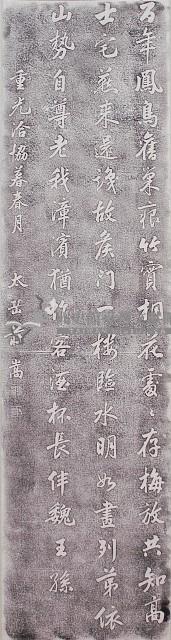 百年鳳鳥舊巢痕竹實桐花處〻存梅放共知高
士宅燕來還識故侯門一樓臨水明如畫列第依
山勢自尊老我漳濱猶作客酒杯長伴魏王孫
重光洽協暮春月 太岳 嵩